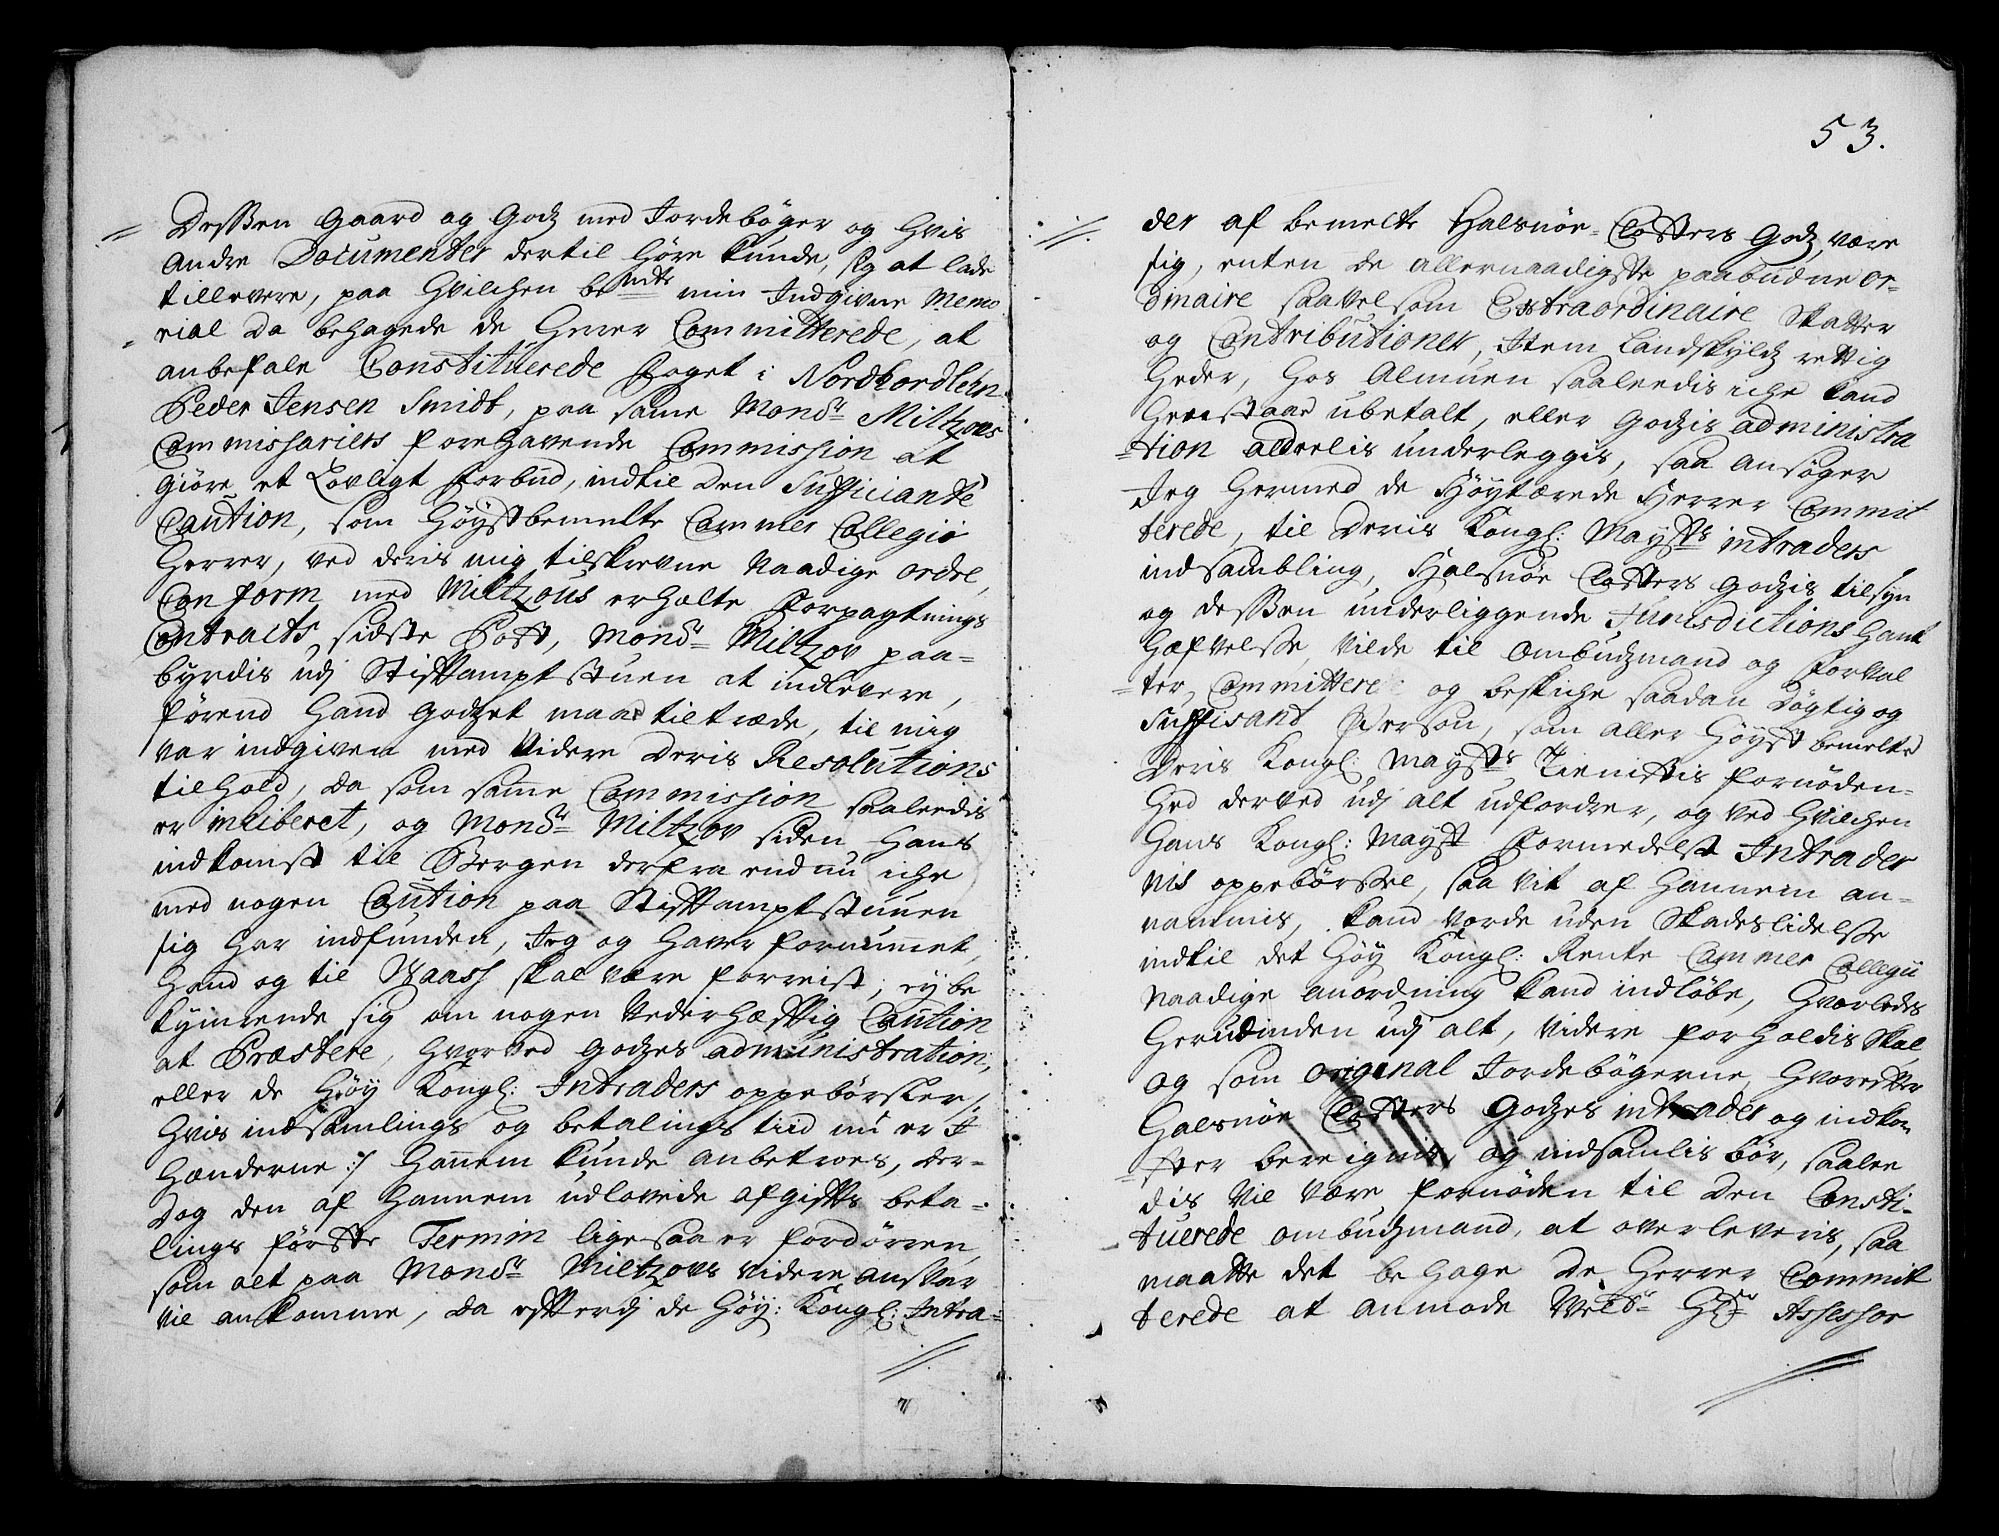 Dessen Gaard og Godz med Jordebøger og hvis
andre Documenter dertil høre kunde, sig at lade
tillevere, paa hvilchen bemte min Indgivne Memo
rial da behagede de herrer Committerede, at
anbefale Constituerede Foget i Nordhordlehn
Peder Jensen Smidt, paa same Monsr Miltzows
Commissariers forehavende Commission at
giøre et Lovligt forbud, indtil den Sufficiante
Caution, som høystbemelte Cammer Collegii
Herrer, ved deris mig tilskrevne Naadige ordre,
Conform med Miltzous erholte forpagtnings
Contracts sidste Post, Monsr Miltzov paa-
byrdis udj Stiftamptstuen at indlevere,
førend hand godzet maa tiltræde, til mig
var indgiven med videre deris Resolutions
tilhold, da som samme Commission saaledis
er inhiberet, og Monsr Miltzov siden hans
indkomst til Bergen derfra endnu iche
med nogen Caution paa Stiftamptstuen
sig har indfunden, Jeg og haver fornummet,
hand og til Waass skal være forreist, ey be
kymrende sig om nogen vederhæfftig Caution
at Præstere, hvorved godzes administration,
eller de høy Kongl: Intraders oppebørsler,
hvis indsamlings og betalings tiid nu er J
hænderne :/ hannem kunde anbetroes, der-
Dog den af hannem udlovede afgiffts beta-
lings første Termin ligesaa er fordørren,
som alt paa Monsr Miltzows videre ansvar
vil ankomme, da effterdj de høy: Kongl: Intra-
53.
der af bemelte Halsnøe Closters Godz, være
sig, enten de allernaadigste paabudne or-
dinaire saavelsom Extraordinaire Skatter
og Contributioner, Item Landskyldz rettig
heder, hos Almuen saaledis iche kand
henstaae ubetalt, eller godzis administra
tion alderlis underleggis, saa ansøger
Jeg hermed de Høytærede Herrer Commit
terede, til Deris Kongl: Maysts intraders
indsambling, Halsnøe Closters godzis tilsyn
og dessen underliggende Jurisdictions hant
hæfvelse, vilde til ombudzmand og forval
ter, Committere og beskiche saadan døgtig og
Suffisant Person, som aller høyst bemelte
Deris Kongl: Maysts Tienistis fornøden-
hed derved udj alt udfordrer, og ved hvilchen
hans Kongl: Mayst formedelst Intrader
nis oppebørssel, saa vit af hannem an-
nammis, kand vorde uden Skadeslidelse
indtil det høy Kongl: Rente Cammer Collegii
Naadige anordning kand indløbe, hvorledes
herudinden udj alt, videre forholdis skal,
og som original Jordebøgerne, hvorefter
Halsnøe Closters Godzes intrader og indkom
ster beregnis og indsamlis bør, saale
dis vil være fornøden til den Consti-
tuerede ombudzmand, at overleveris, saa
maatte det behage de herrer Commit
terede at anmode Welbr Hr Assessor